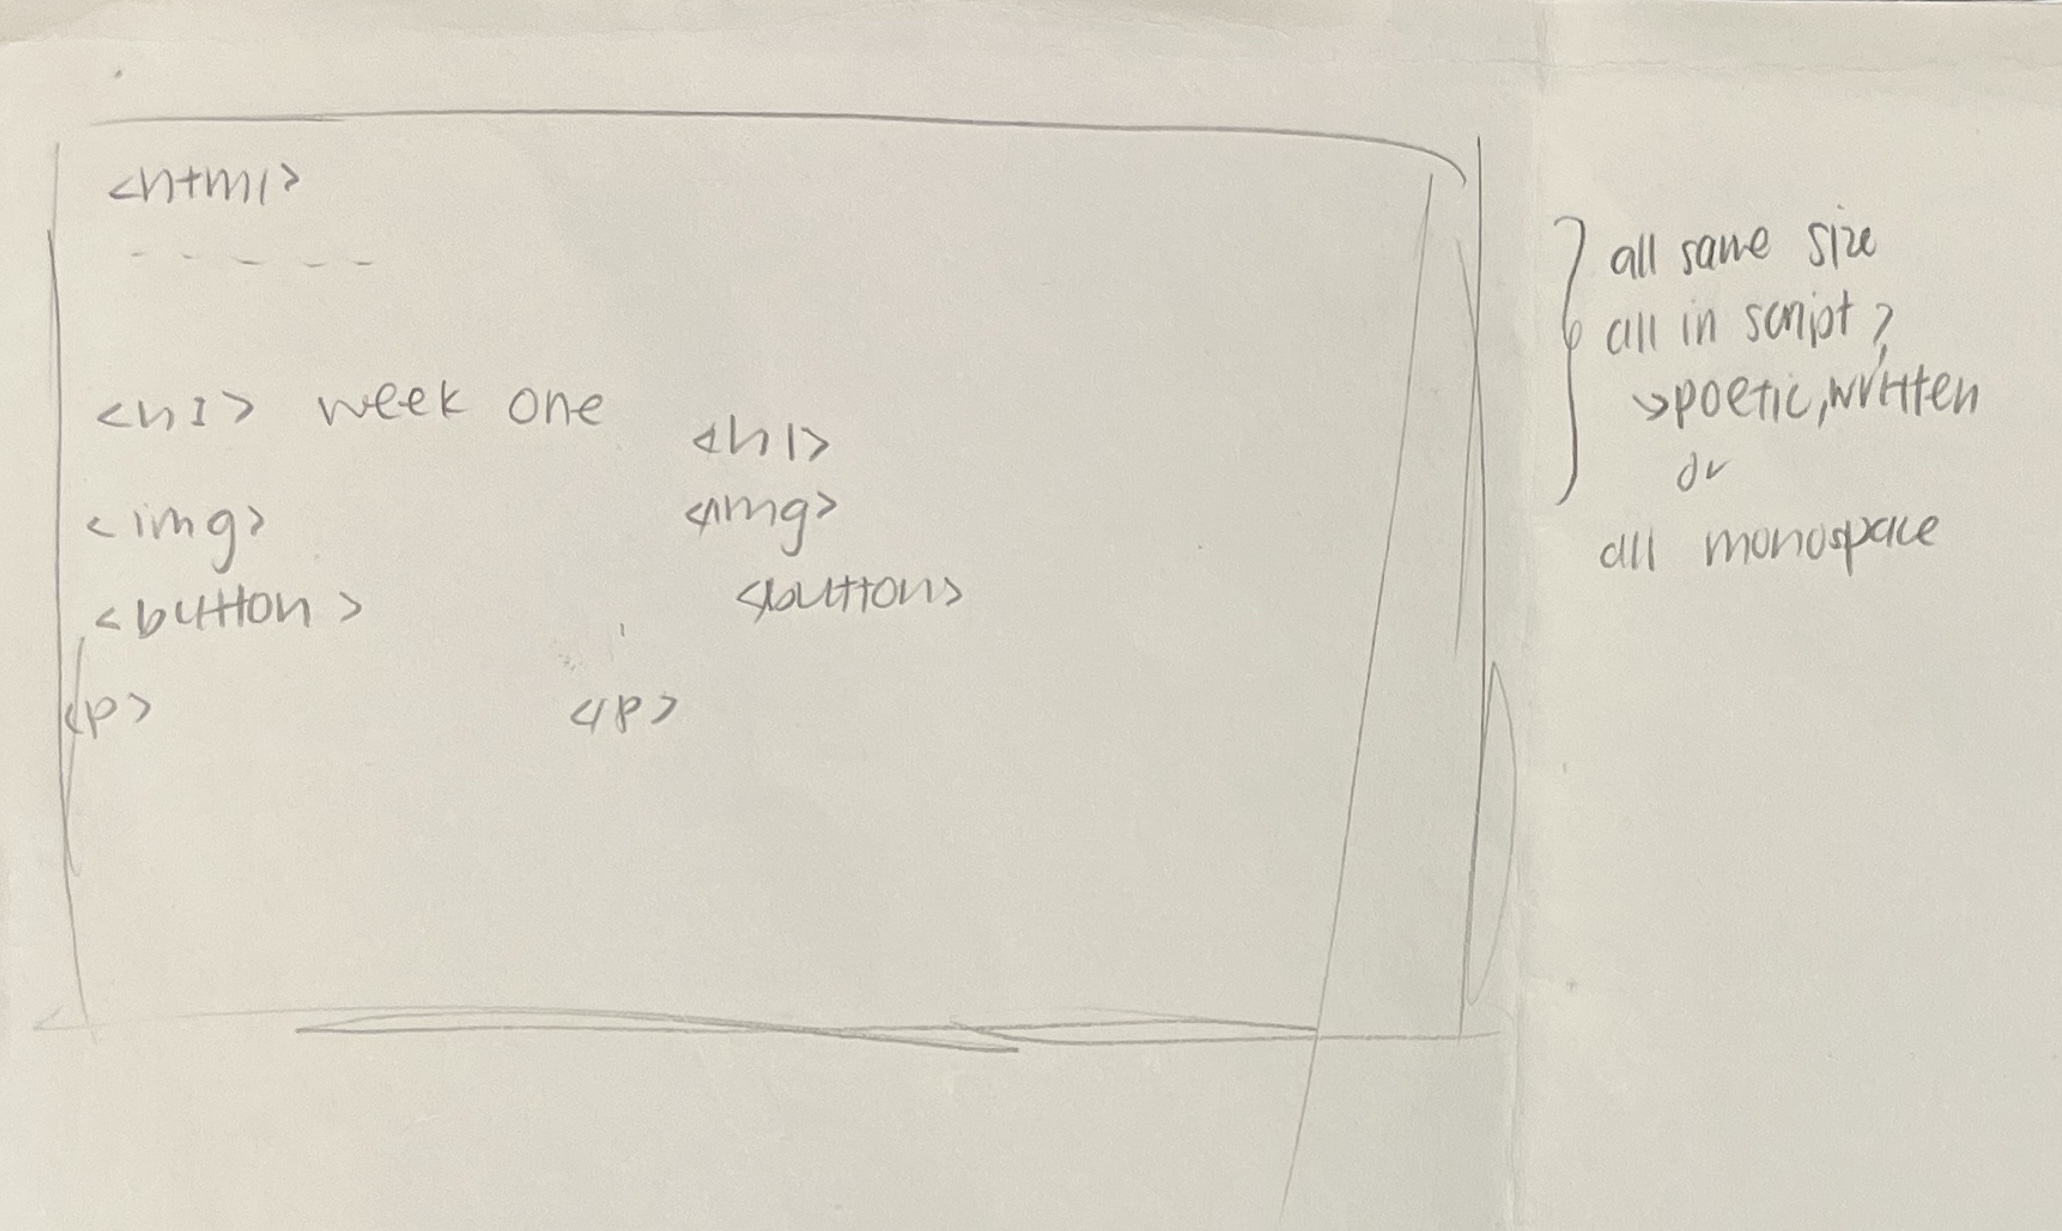 <html>
- - - - -
<h1> week one
<h1>
<img>
<img>
<button>
<button>
<p>
</p>
all same size
all in script?
↘poetic, written
or
all monospace